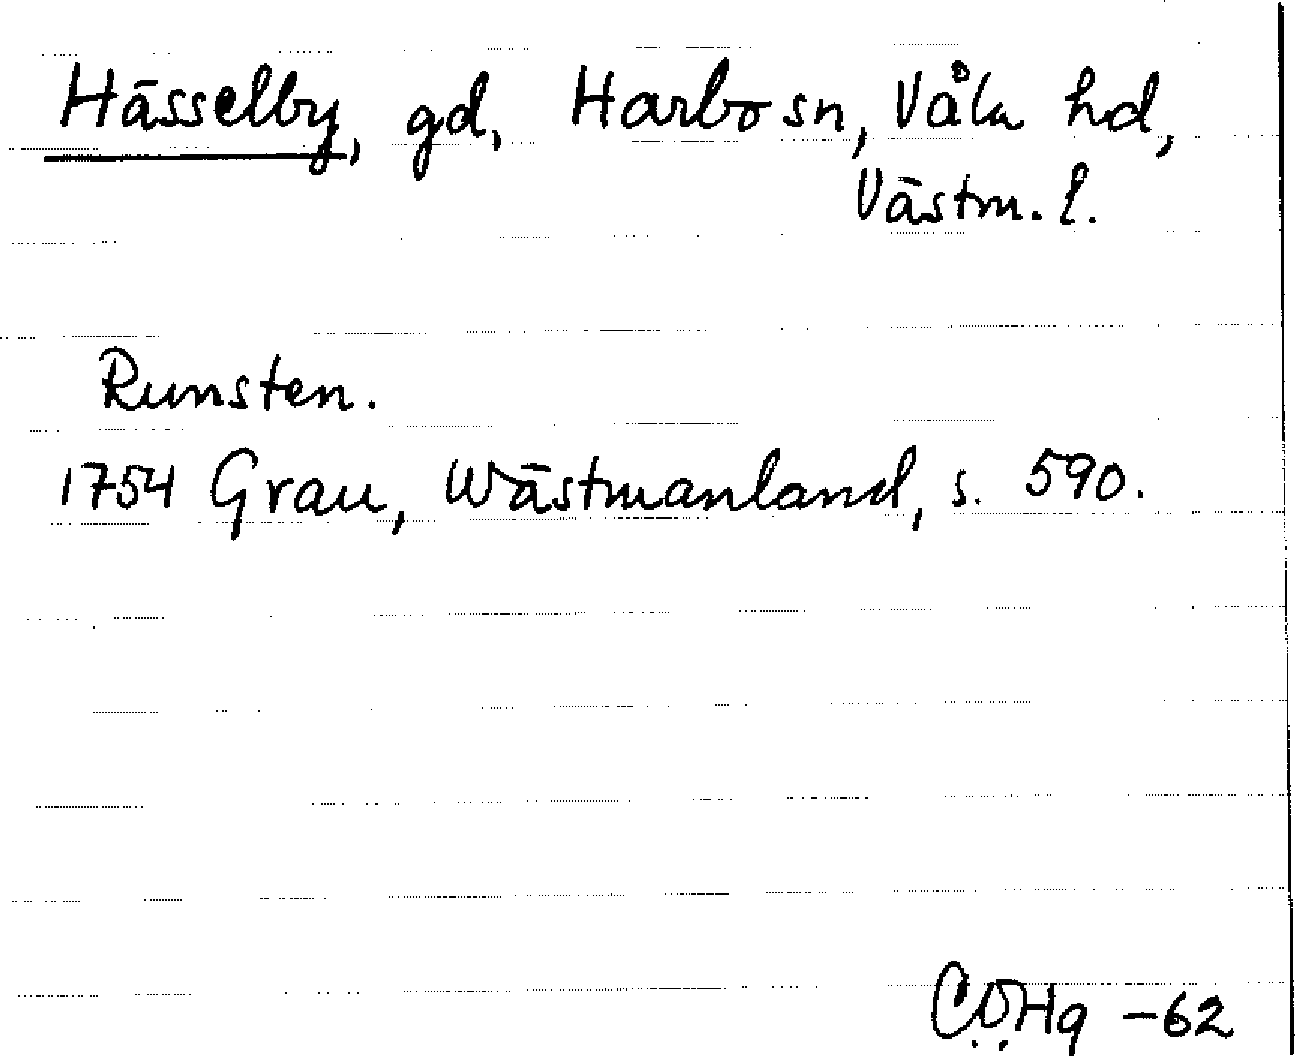 Hässelby, gd, Harbo sn, Våla hd,
Västm. l.
Runsten.
1754 Grau, Wästmanland, s. 590.
-62